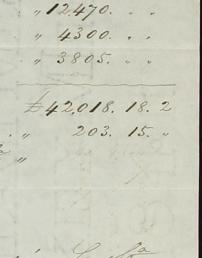 " 12,470. " "
" 4300. " "
" 3805. " "
£42,018. 18. 2
" 203. 15. "
"